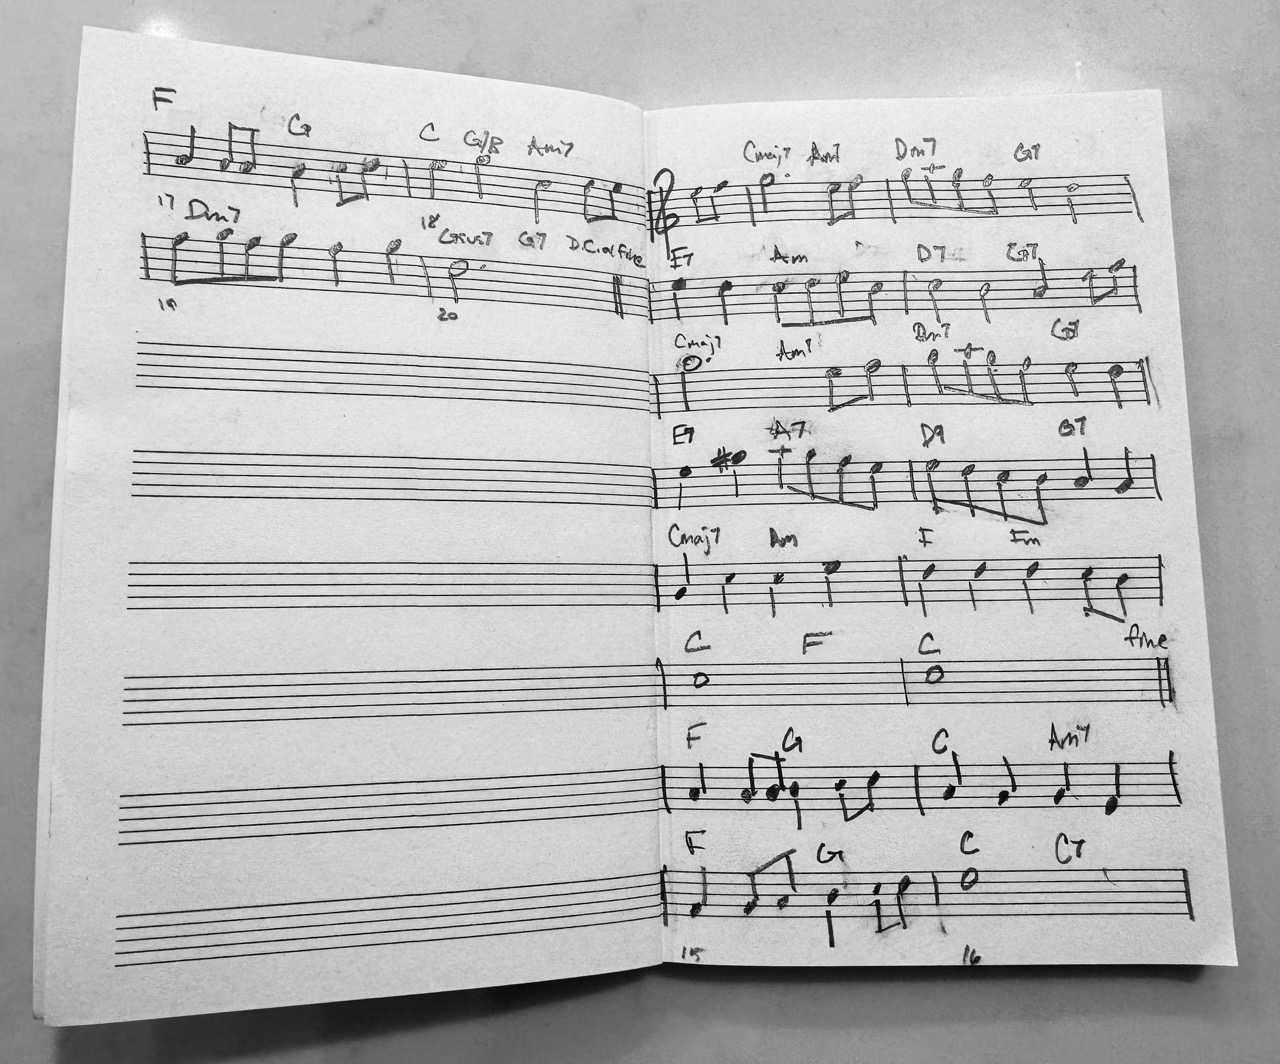 F G C G/B Am7
17 18
Dm7 G7 D.C. al fine
19 20
Cmaj7 Am7 Dm7 G7
E7 Am D7 G7
Cmaj7 Am7 Dm7 G7
E7 A7 D9 G7
Cmaj7 Am F Fm
C F C fine
F G C Am7
F G C C7
15 16